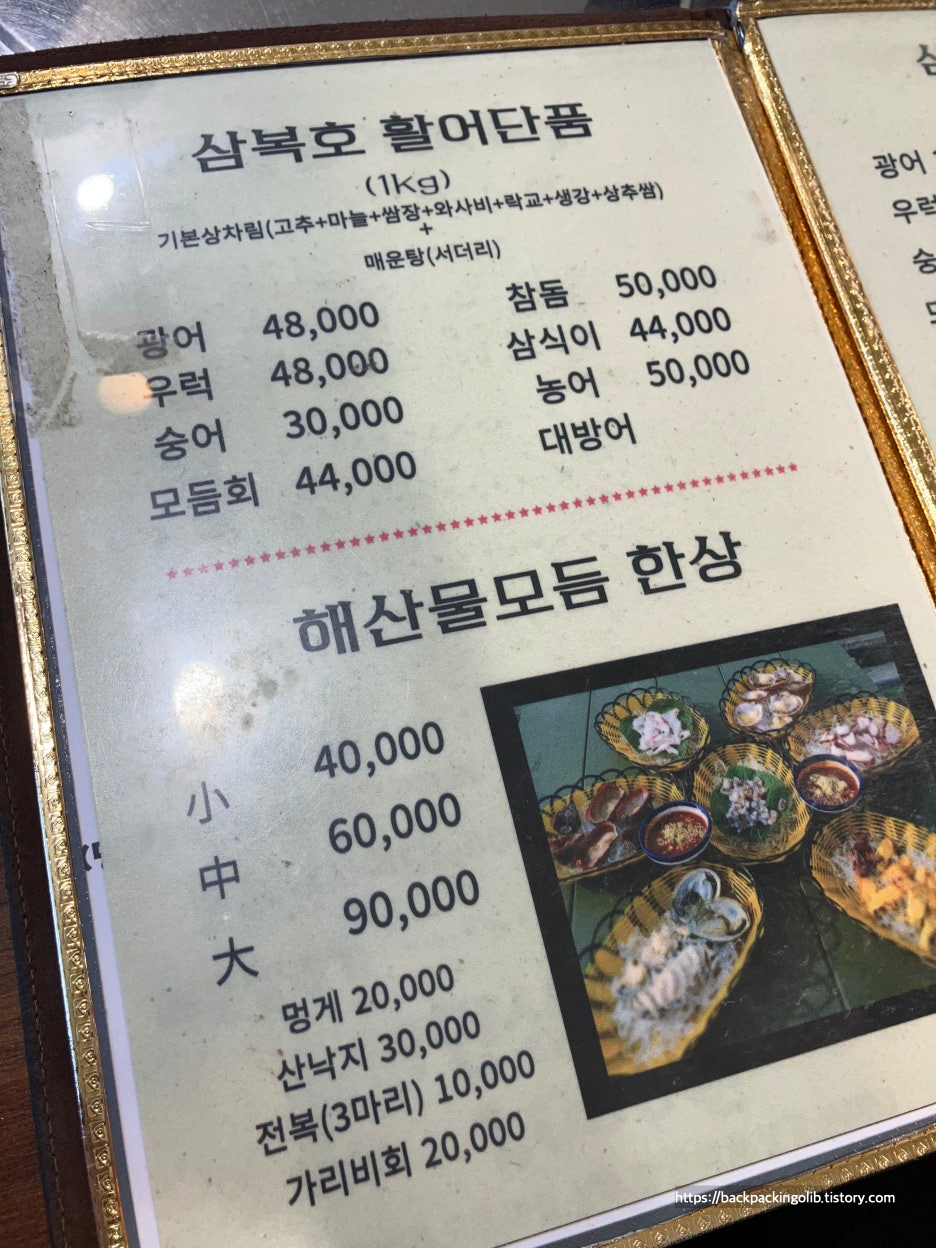 삼복호 활어단품
(1Kg)
기본상차림(고추+마늘+쌈장+와사비+락교+생강+상추쌈)
+
매운탕(서더리)
광어 48,000
우럭 48,000
숭어 30,000
모듬회 44,000
참돔 50,000
삼식이 44,000
농어 50,000
대방어
해산물모듬 한상
小 40,000
中 60,000
大 90,000
멍게 20,000
산낙지 30,000
전복(3마리) 10,000
가리비회 20,000
광어
우럭
https://backpackingolib.tistory.com